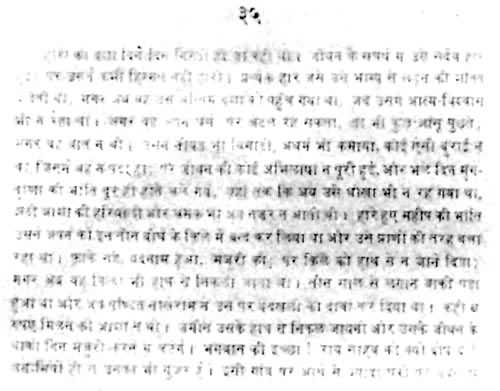 ३५
होरी की दशा दिन-दिन गिरती ही जा रही थी। जीवन के संघर्ष में उसे सदैव हार
पर उसने कभी हिम्मत नहीं हारी। प्रत्येक हार जैसे उसे भाग्य से लड़ने की शक्ति
देती थी, मगर अब वह उस अन्तिम दशा को पहुँच गया था, जब उसमें आत्म-विश्वास
भी न रहा था। अगर वह अपने धर्म पर अटल रह सकता, तो भी कुछ आँसू पुछते,
मगर वह बात न थी। उसने नीयत भी बिगाड़ी, अधर्म भी कमाया, कोई ऐसी बुराई न
थी जिसमें वह न पड़ा हो, पर जीवन की कोई अभिलाषा न पूरी हुई, और भले दिन मृग-
तृष्णा की भाँति दूर ही होते चले गये, यहाँ तक कि अब उसे धोखा भी न रह गया था,
झूठी आशा की हरियाली और चमक भी अब नज़र न आती थी। हारे हुए महीप की भाँति
उसने अपने को इन तीन बीघे के किले में बन्द कर लिया था और उसे प्राणों की तरह बचा
रहा था। फ़ाके सहे, बदनाम हुआ, मजूरी की, पर किले को हाथ से न जाने दिया;
मगर अब वह किला भी हाथ से निकला जाता था। तीन साल से लगान बाकी पड़ा
हुआ था और अब पण्डित नोखेराम ने उस पर बेदखली का दावा कर दिया था। कहीं से
रुपए मिलने की आशा न थी। ज़मीन उसके हाथ से निकल जायगी और उसके जीवन के
बाकी दिन मजूरी करने में कटेंगे। भगवान की इच्छा! राय साहब को क्यों दोष दे?
असामियों ही से उनका भी गुज़र है। इसी गाँव पर आधे से ज़्यादा घरों पर